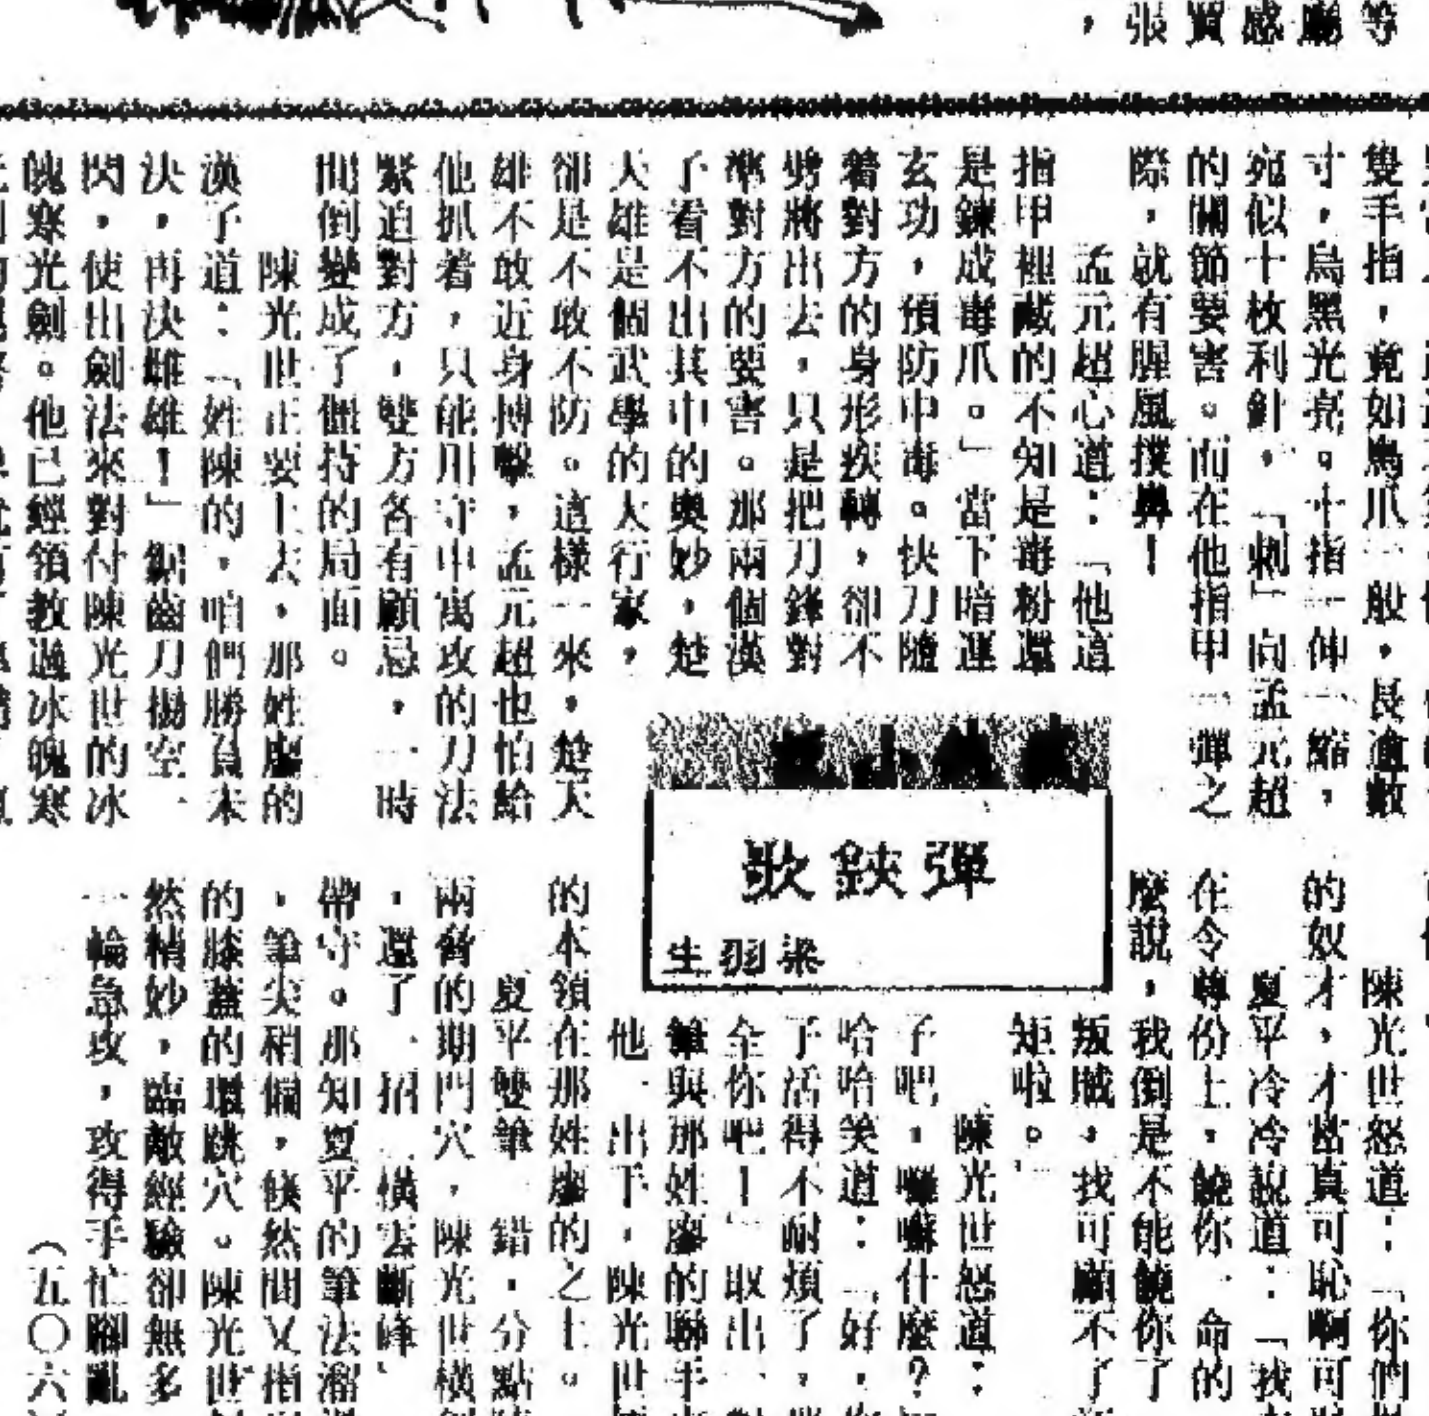 等
廳
感
賀
張，
隻手指，竟如鳥爪一般，長逾數
寸，烏黑光亮。十指一伸一縮，
宛似十枚利針，「刺」向孟元超
的關節要害。而在他指甲一彈之
際，就有腥風撲鼻！
孟元超心道：「他這
指甲裡藏的不知是毒粉還
是鍊成毒爪。」當下暗運
玄功，預防中毒。快刀隨
着對方的身形疾轉，卻不
劈將出去，只是把刀鋒對
準對方的要害。那兩個漢
子看不出其中的奧妙，楚
天雄是個武學的大行家，
卻是不敢不防。這樣一來，楚天
雄不敢近身搏擊，孟元超也怕給
他抓着，只能用守中寓攻的刀法
緊迫對方，雙方各有顧忌，一時
間倒變成了僵持的局面。
陳光世正要上去，那姓廖的
漢子道：「姓陳的，咱們勝負未
決，再決雌雄！」鋸齒刀揚空一
閃，使出劍法來對付陳光世的冰
魄寒光劍。他已經領教過冰魄寒
彈鋏歌
梁羽生
陳光世怒道：「你們
的奴才，才當真可恥啊可
夏平冷冷說道：「我
在令尊份上，饒你一命的
麼說，我倒是不能饒你了
叛賊，我可顧不了
矩啦。」
陳光世怒道：
子吧，囉囌什麼？
哈哈笑道：「好，
子活得不耐煩了，
全你吧！」取出
筆與那姓廖的聯手
他一出手，陳光世
的本領在那姓廖的之上。
夏平雙筆一錯，分點
兩脅的期門穴，陳光世橫
，還了一招「橫雲斷峰」
帶守。那知夏平的筆法溜
，筆尖稍偏，倏然間又指
的膝蓋的環跳穴。陳光世
然精妙，臨敵經驗卻無多
一輪急攻，攻得手忙腳亂
（五〇六